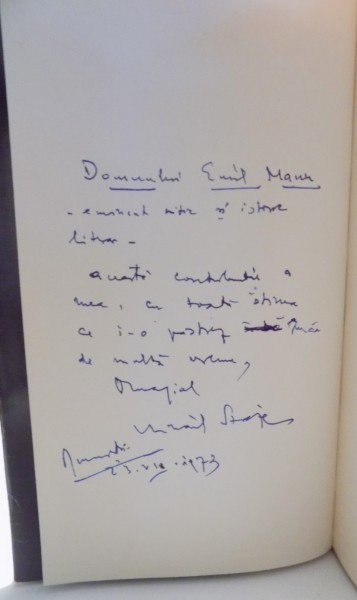 Domnului Emil Manu
- eminent critic și istoric
literar -
această contribuție a
mea, cu toată stima
ce i-o păstrez încă
de multă vreme,
Omagial
Mihail
23.VII.1973